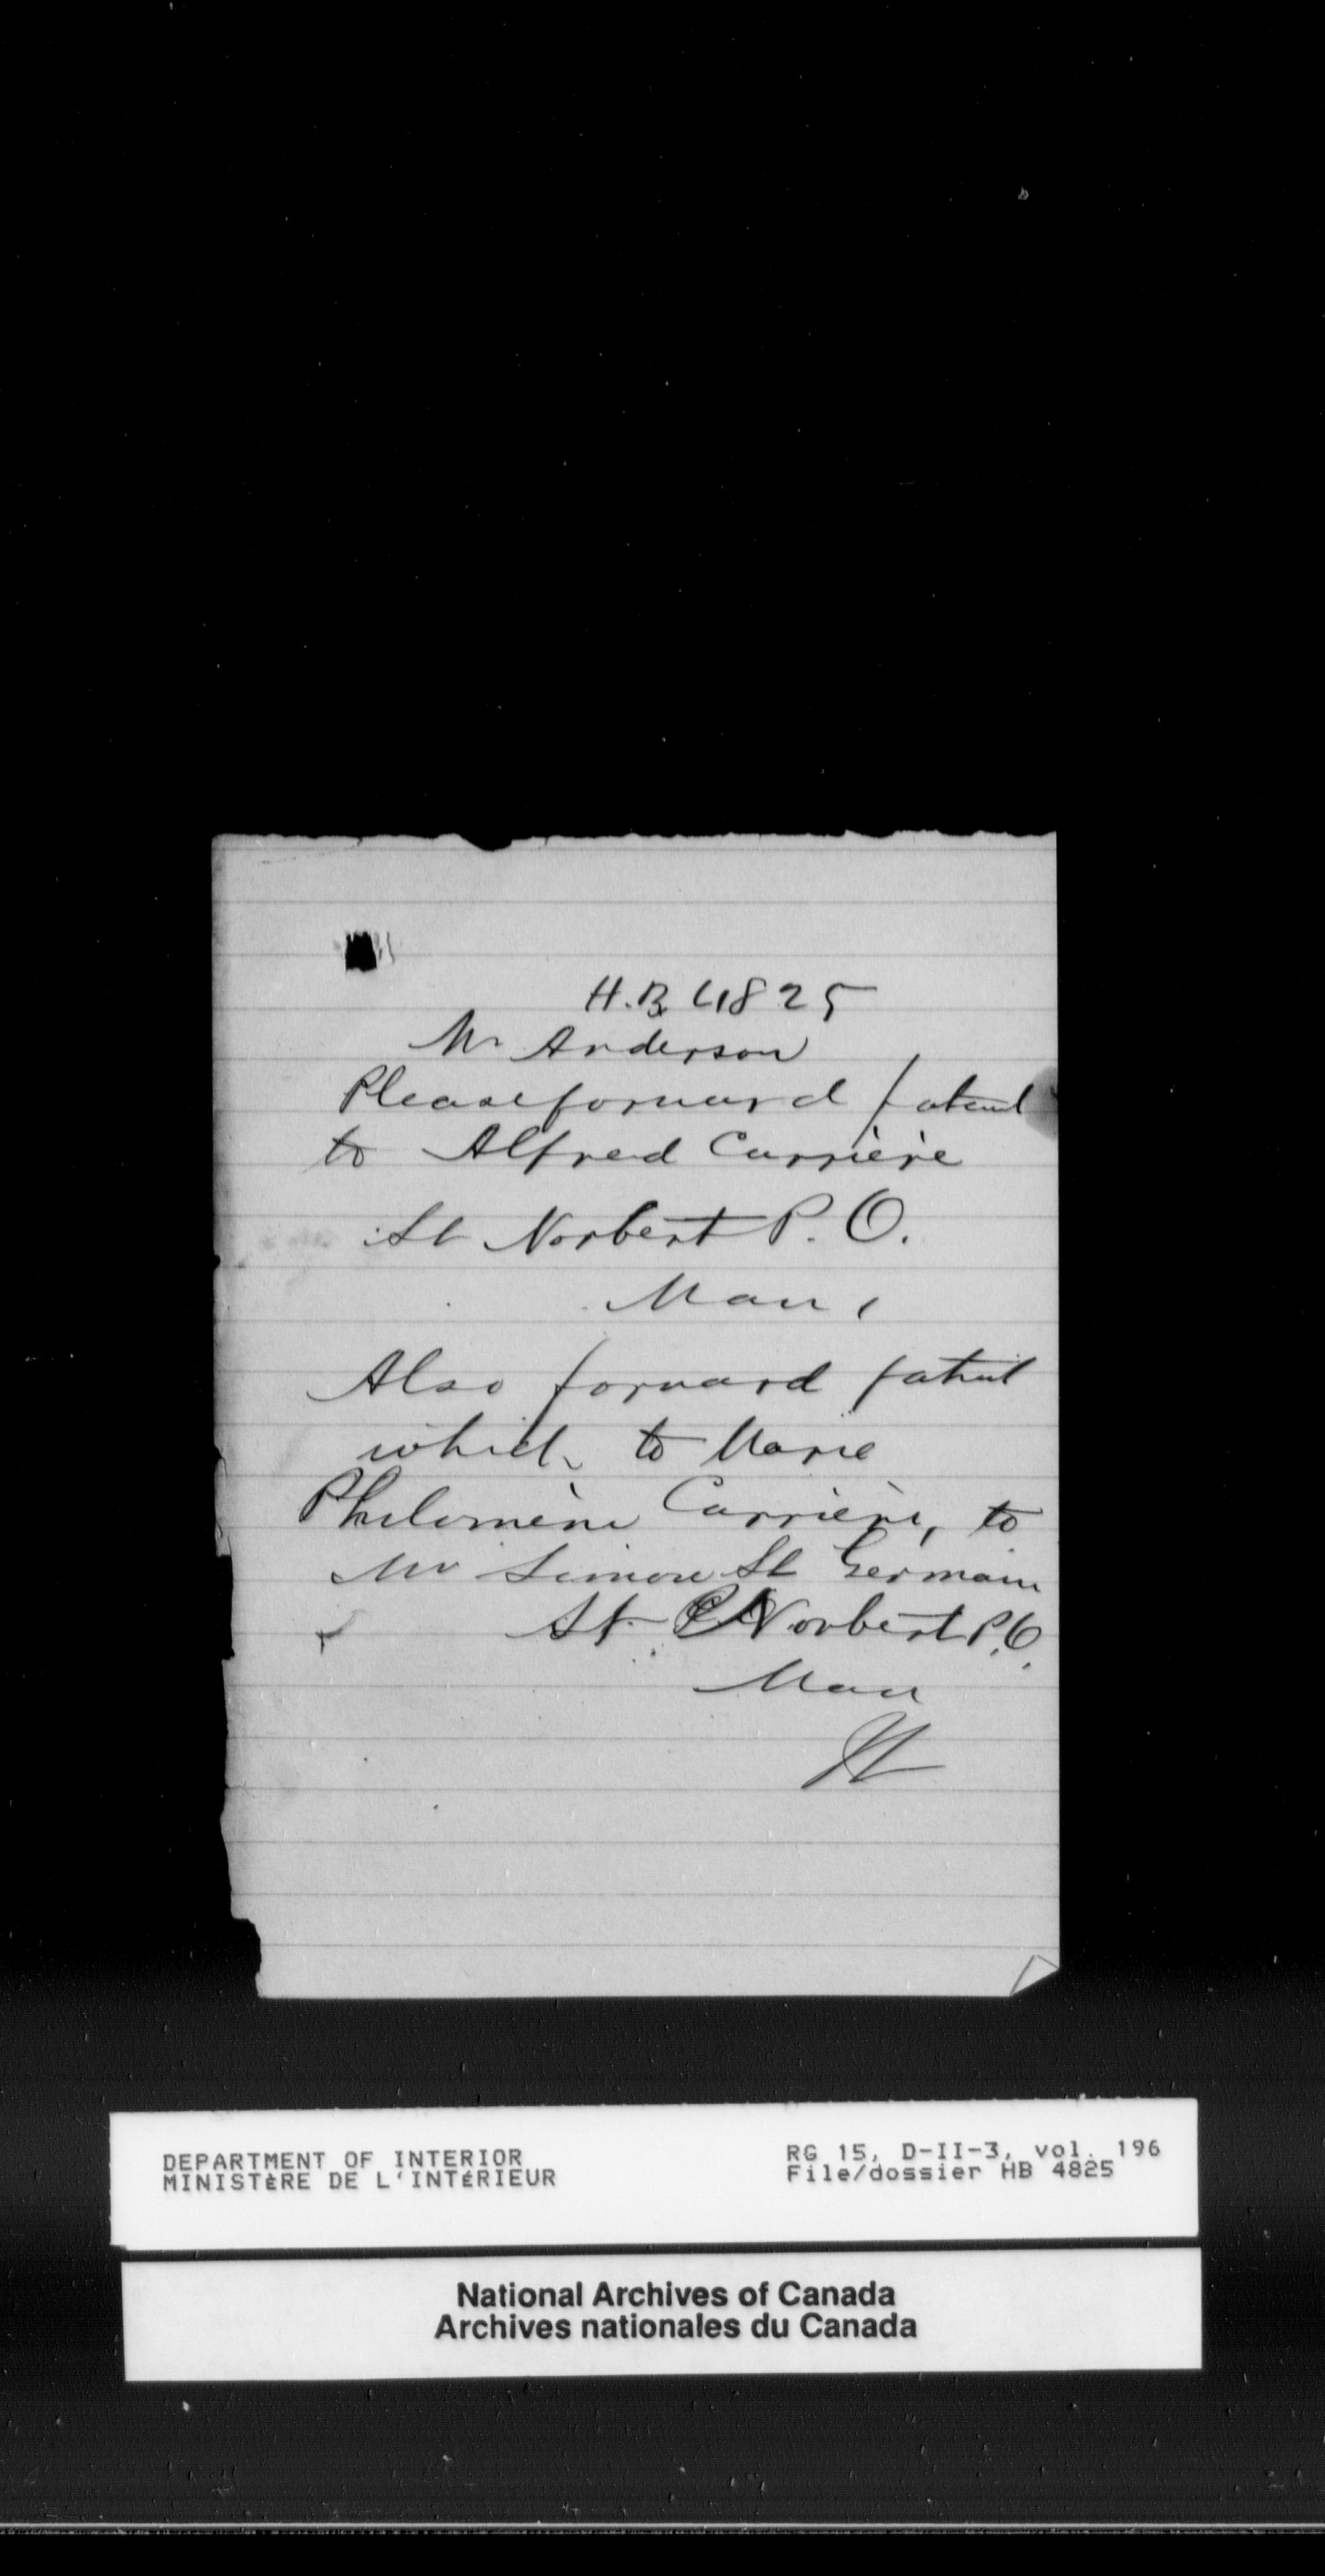 H.B. 4825
Mr Anderson
Please forward patent
to Alfred Carrière
St Norbert P.O.
Man.
Also forward patent
which to Marie
Philomène Carrière, to
Mr Simon St Germain
St Norbert P.O.
Man
DEPARTMENT OF INTERIOR
MINISTÈRE DE L'INTÉRIEUR
RG 15, D-II-3, vol. 196
File/dossier HB 4825
National Archives of Canada
Archives nationales du Canada